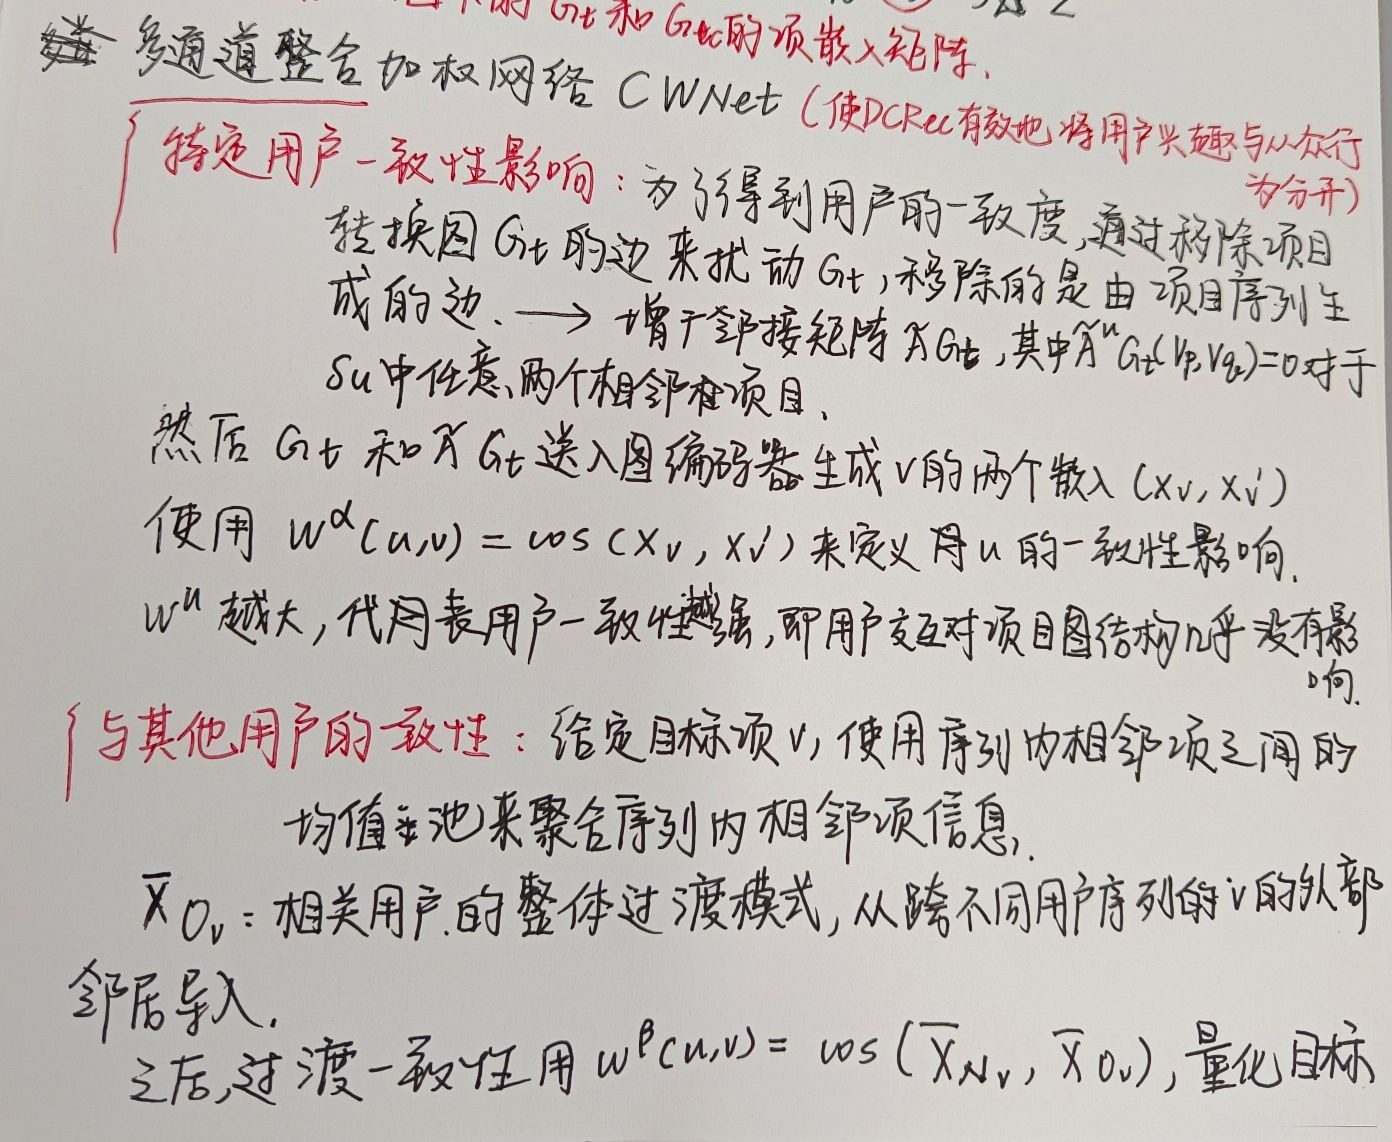 的 Gt 和 Gtc的项嵌入矩阵.
多通道整合加权网络 CWNet (使DCRec有效地将用户兴趣与从众行
为分开)
特定用户一致性影响: 为了得到用户的一致度,通过移除项目
转换图 Gt 的边来扰动 Gt,移除的是由项目序列生
成的边. → 增广邻接矩阵 ÃGt,其中Ã^u Gt(Vp,Vq)=0对于
Su中任意两个相邻项目.
然后 Gt 和 Ã Gt 送入图编码器生成 v 的两个嵌入 (Xv, Xv')
使用 W^α(u,v) = cos(Xv, Xv') 来定义用u的一致性影响.
W^u 越大,代表用户一致性越强,即用户交互对项目图结构几乎没有影
响.
与其他用户的一致性: 给定目标项v,使用序列内相邻项之间的
均值池来聚合序列内相邻项信息.
X̄Ov: 相关用户的整体过渡模式,从跨不同用户序列的v的外部
邻居导入.
之后,过渡一致性用 W^β(u,v) = cos(X̄Nv, X̄Ov), 量化目标